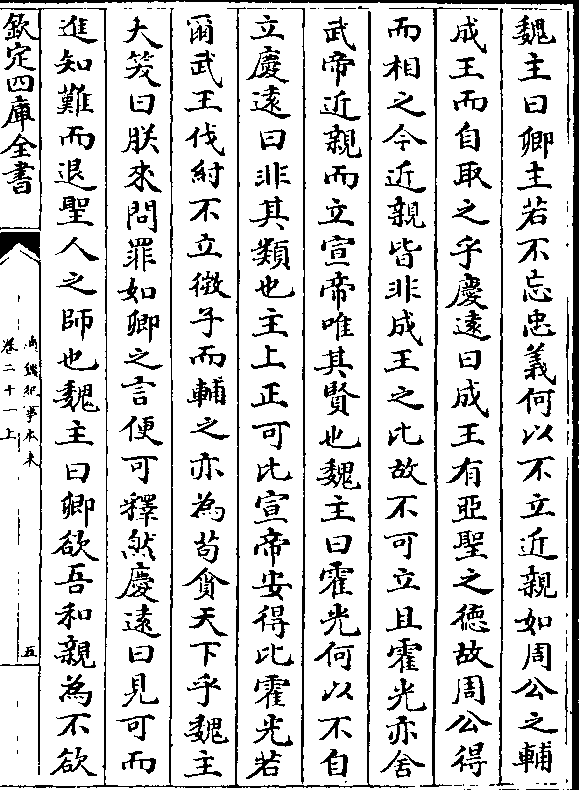 魏主曰卿主若不忘忠義何以不立近親如周公之輔
成王而自取之乎慶遠曰成王有亞聖之德故周公得
而相之今近親皆非成王之比故不可立且霍光亦舍
武帝近親而立宣帝唯其賢也魏主曰霍光何以不自
立慶遠曰非其類也主上正可比宣帝安得比霍光若
爾武王伐紂不立微子而輔之亦為苟貪天下乎魏主
大笑曰朕來問罪如卿之言便可釋然慶遠曰見可而
進知難而退聖人之師也魏主曰卿欲吾和親為不欲
欽定四庫全書
通鑑紀事本末
卷二十一上
五